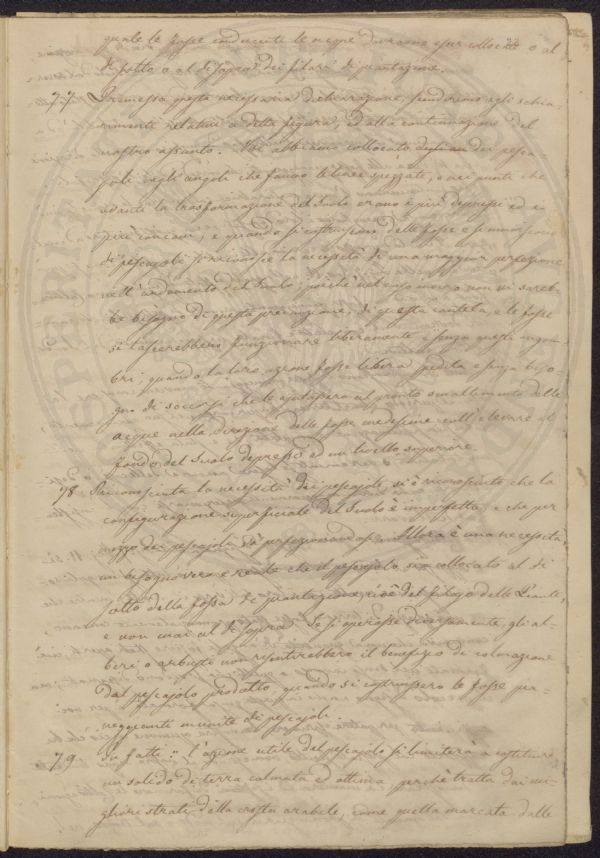 quale le fosse conducenti le acque dovranno esser collocate o al
di sotto o al di sopra dei filari di piantazione.
77 Premessa questa necessaria dichiarazione, prenderemo agli schia-
rimenti relativi a detta figura, ed alla continuazione del
nostro assunto. Noi abbiamo collocato degli dei pesca-
joli negli angoli che fanno le linee spezzate, o nei punti che
stante la trasformazione del suolo erano i più depressi ed e
più concavi, e quando si costruiscono delle fosse e si muniscono
di pescajoli si riconosce la necessità di una maggior perfezione
nell'andamento del suolo; poiché nel caso inverso non vi sareb-
be bisogno di questa precauzione, di questa cautela, e le fosse
si lascerebbero funzionare liberamente e senza questi ingom-
bri; quando la loro azione fosse libera spedita e senza biso-
gno di soccorsi che le ajutassero al pronto smaltimento delle
acque nella direzione delle fosse medesime coll'elevare il
fondo del suolo depresso ad un livello superiore.
78 Riconosciuta la necessità dei pescajoli, si è riconosciuto che la
configurazione superficiale del suolo è imperfetta, e che per
mezzo dei pescajoli va perfezionandosi. Allora è una necessità,
un bisogno vero e reale che il pescajolo sia collocato al di
sotto della fossa di piantazione, cioè del filajo delle Piante,
e non mai al di sopra. Se si operasse diversamente, gli al-
beri o arbusti non risentirebbero il benefizio di colmazione
dal pescajolo prodotto, quando si costruissero le fosse pa-
neggianti munite di pescajoli.
79. In fatti: l'azione utile del pescajolo si limiterà a costituire
un solido di terra colmata ed ottima, perchè tratta dai mi-
gliori strati della crosta arabile, come quella marcata dalle